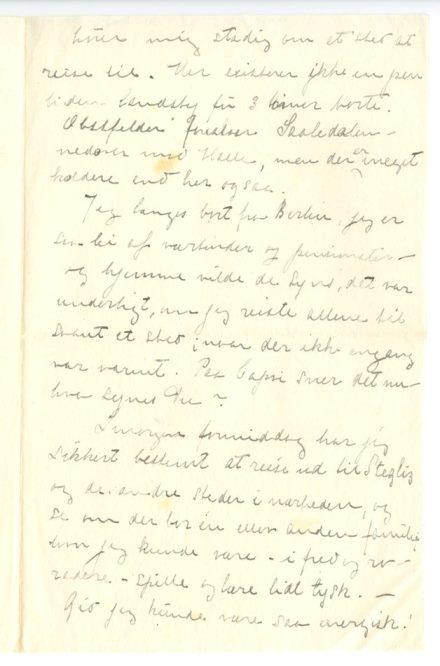 hører mig stadig om et sted at
reise til. Her existerer ikke en pen
liden landsby før 3 timer borte.
Obstfelder foreslaar Saaledalen –
nedover mod Halle, men der er meget
koldere end her ogsaa.
Jeg længes bort fra Berlin, jeg er
saa lei af værtinder og pensionater –
og hjemme vilde de synes, det var
underligt, om jeg reiste allene til
saant et sted; hvor der ikke engang
var varmt. Paa Capri sner det nu –
hva synes Du?
Imorgen formiddag har jeg
sikkert bestemt at reise ud til Stegliz
og de andre steder i nærheden, og
se om der bor én eller anden familie,
hvor jeg kunde være – i fred og ro –
radere. – spille og lære lidt tysk. –
Gid jeg kunde være saa energisk!